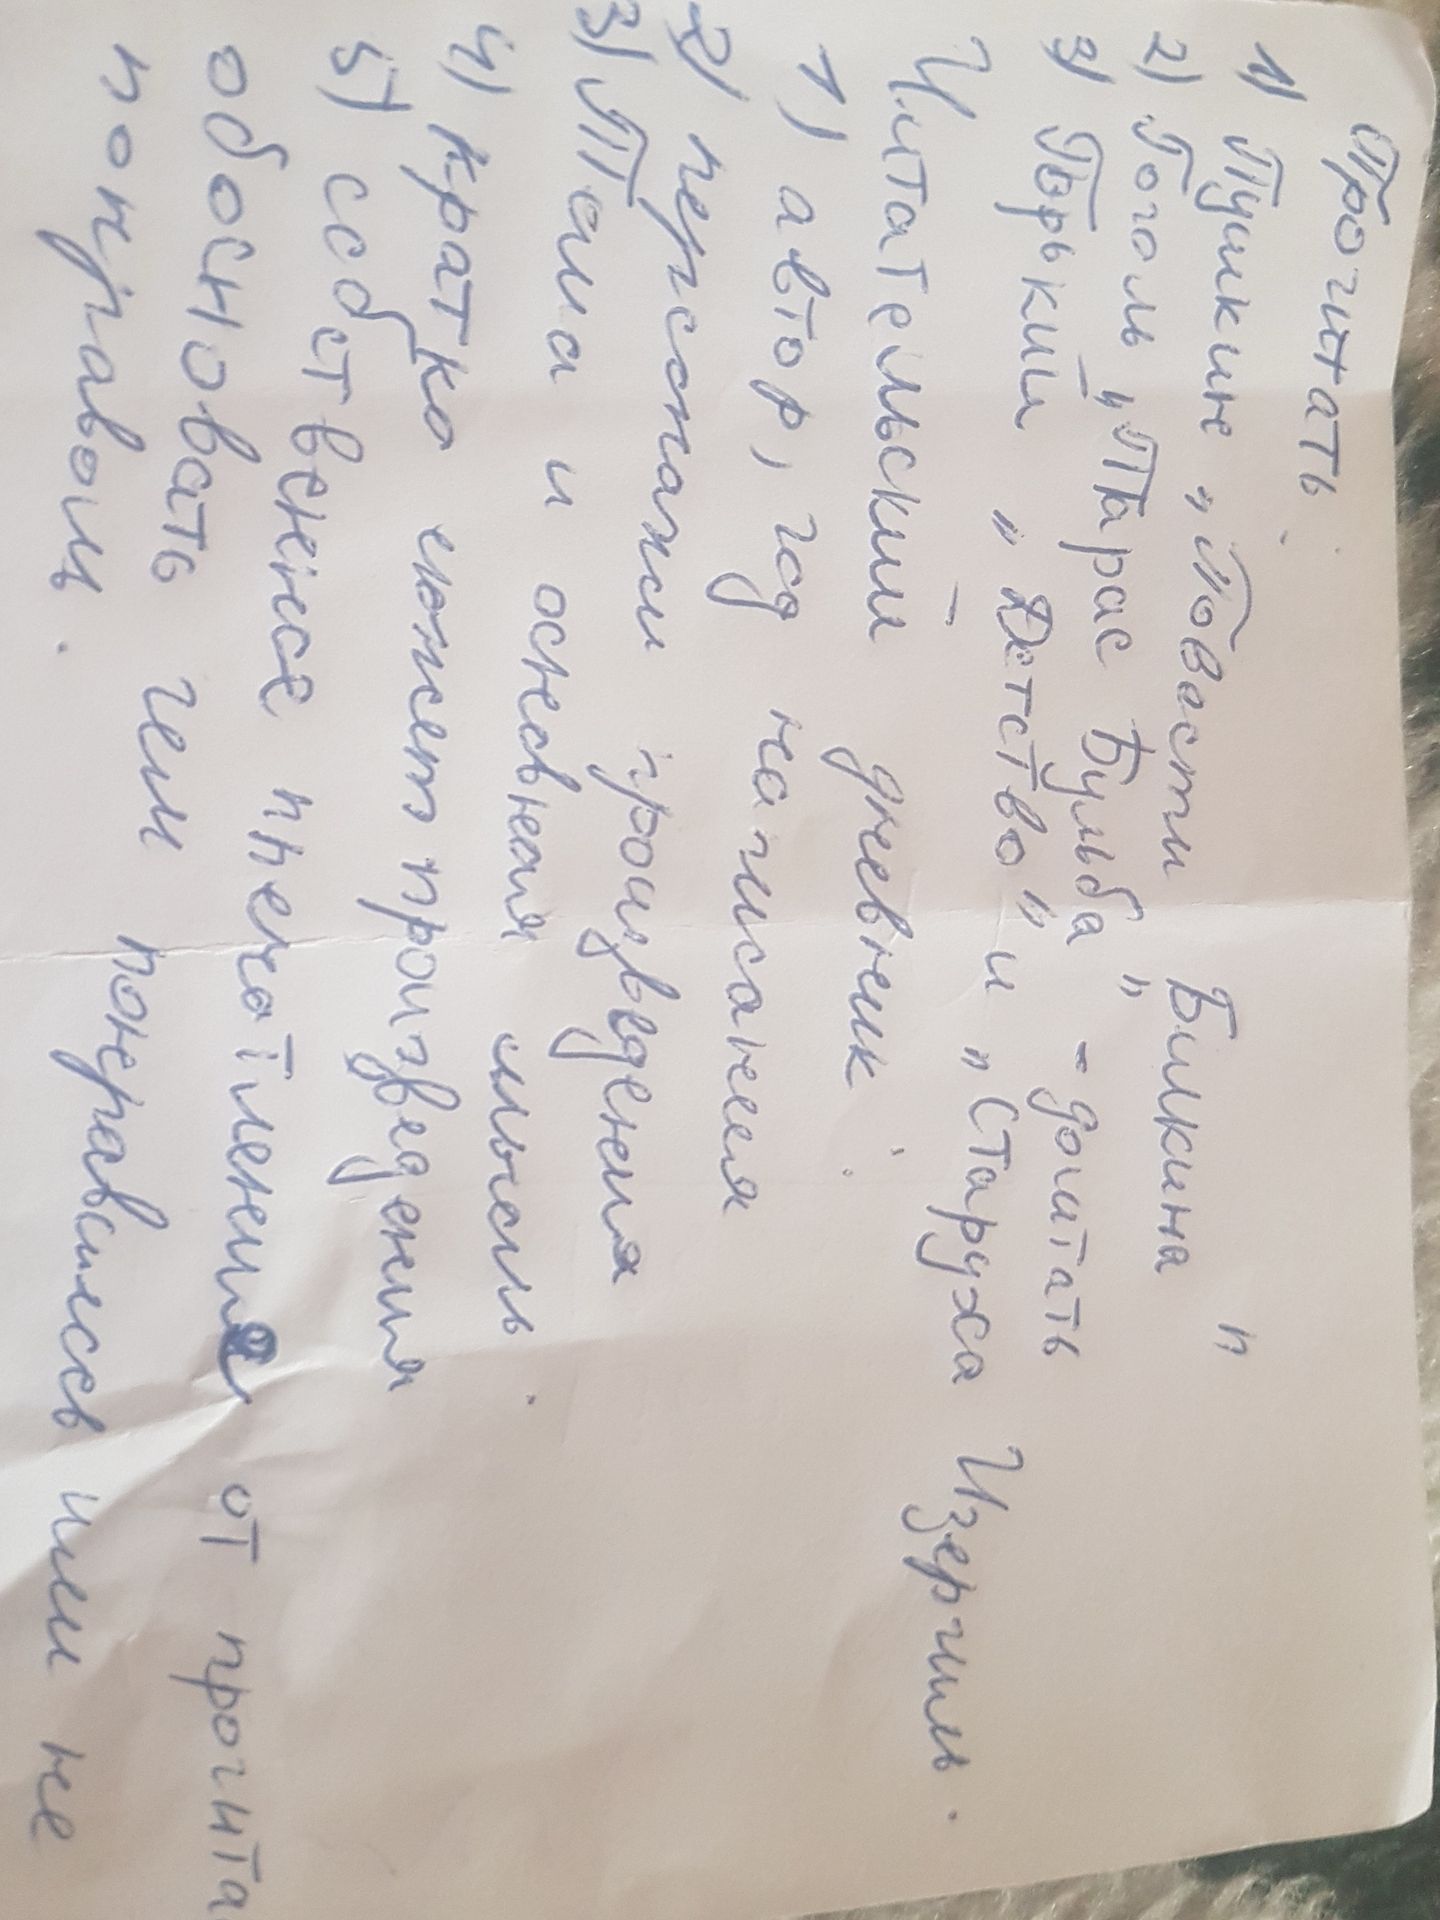 Прочитать:
1) Пушкин „Повести Билкина"
2) Гоголь „Тарас Бульба" - дочитать
3) Горький „Детство" и „Старуха Изергиль.
Читательский дневник:
1) автор, год написания
2) персонажи произведения
3) Тема и основная мысль.
4) кратко сюжет произведения
5) собственное впечатление от прочита
обосновать чем понравилось или не
понравом.